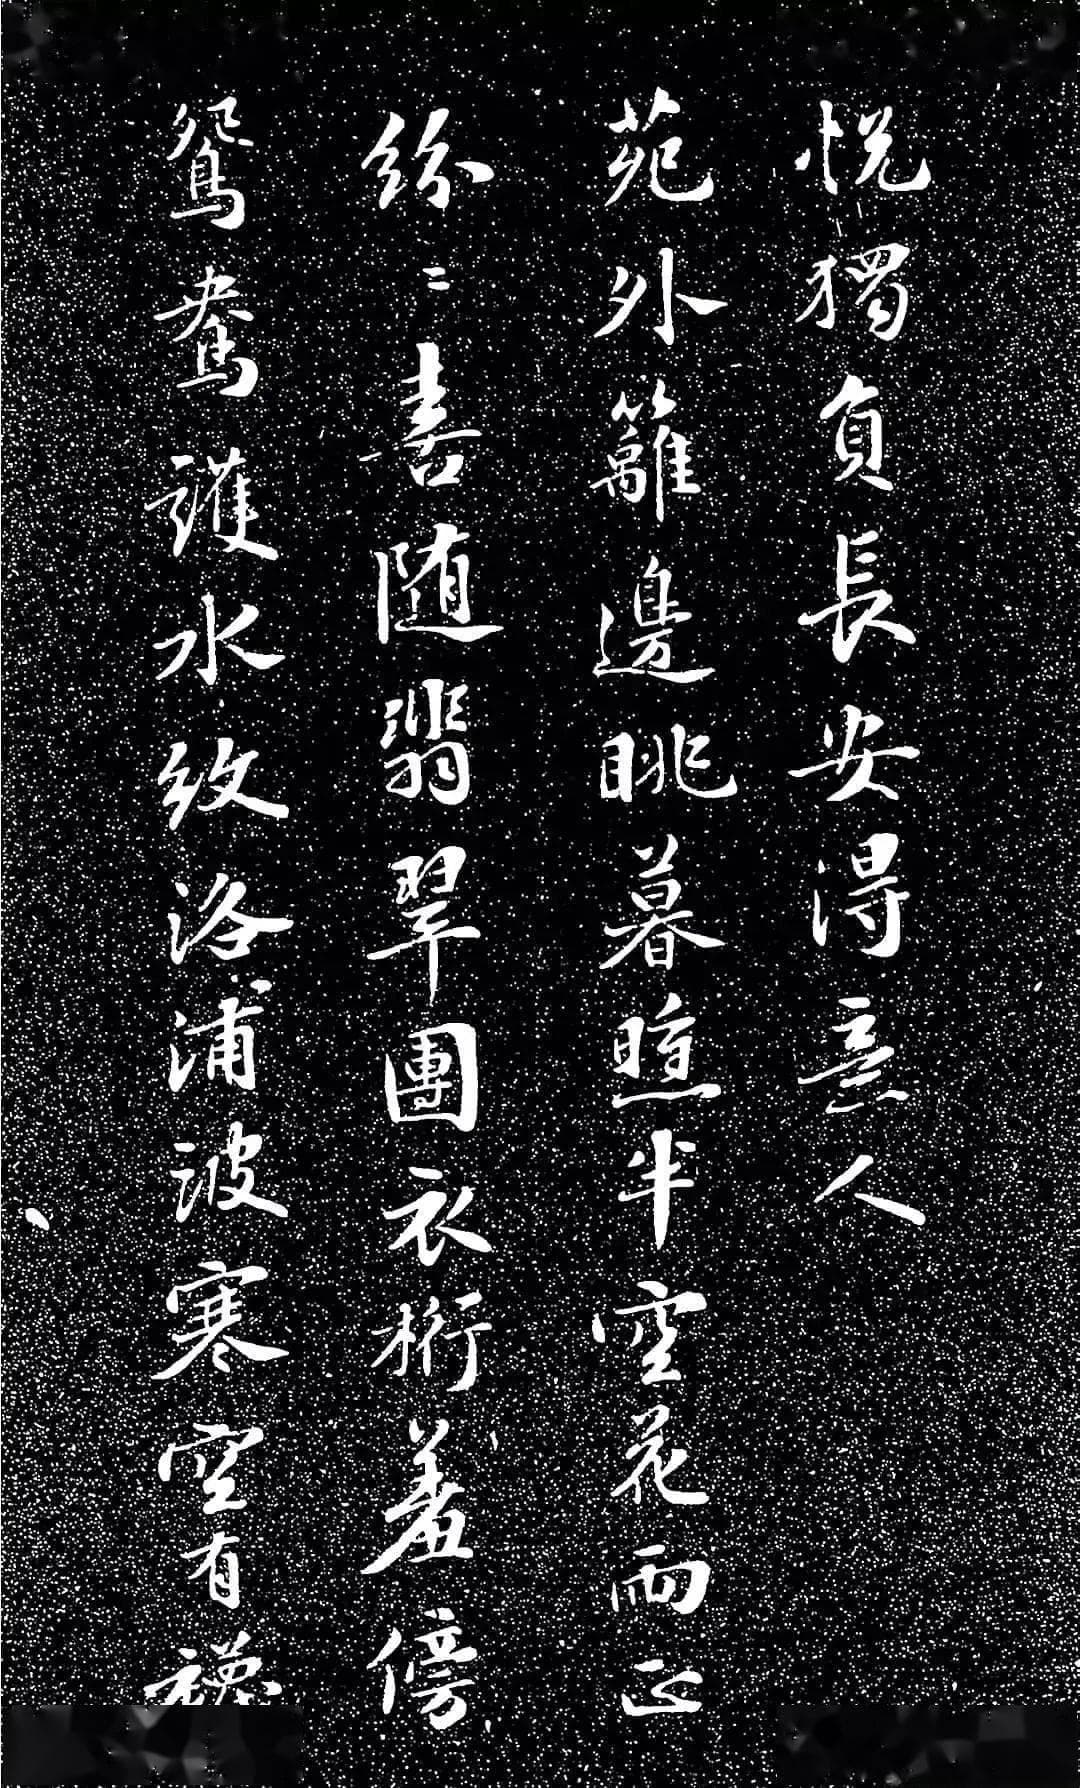 悦獨負長安得意人
苑外籬邊眺暮煦半空花雨正
紛〻喜随翡翠團衣桁羞傍
鴛鴦護水紋洛浦波寒空有襪